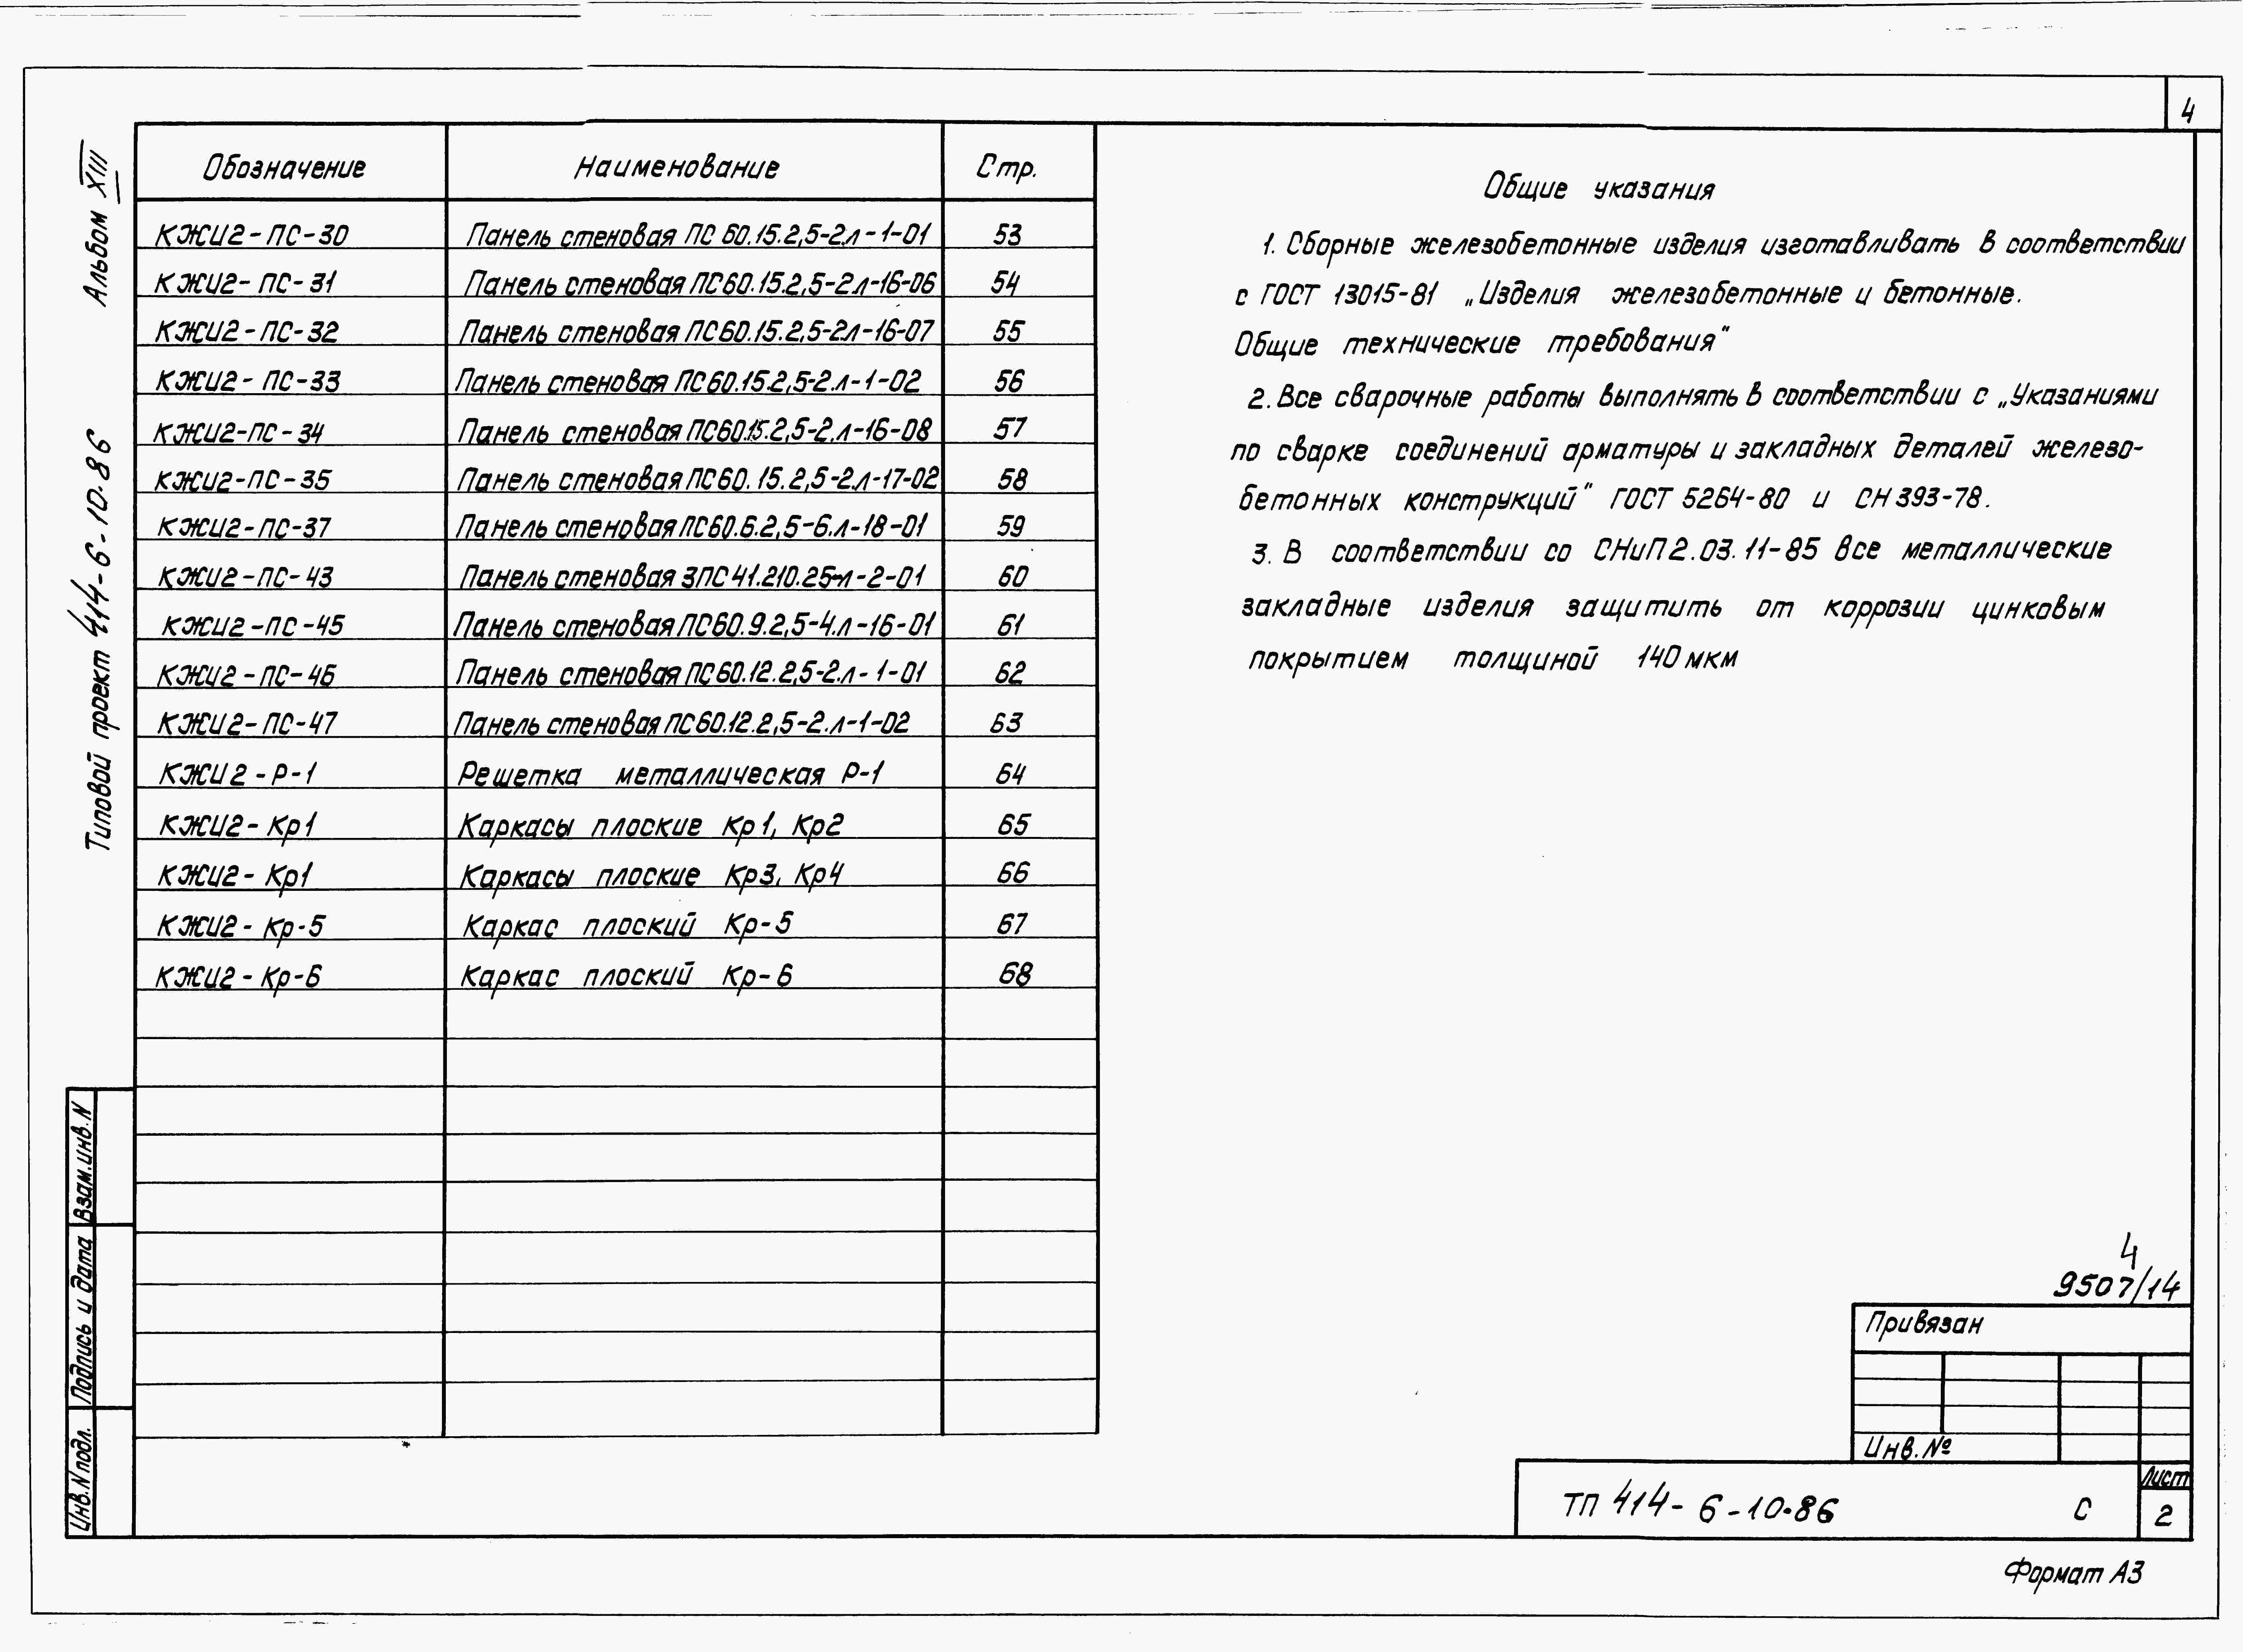 4
Альбом XIII
Типовой проект 414-6-10-86
Обозначение Наименование Стр.
КЖИ2-ПС-30 Панель стеновая ПС 60.15.2,5-2.л-1-01 53
КЖИ2-ПС-31 Панель стеновая ПС60.15.2,5-2.л-16-06 54
КЖИ2-ПС-32 Панель стеновая ПС60.15.2,5-2.л-16-07 55
КЖИ2-ПС-33 Панель стеновая ПС60.15.2,5-2.л-1-02 56
КЖИ2-ПС-34 Панель стеновая ПС60.15.2,5-2.л-16-08 57
КЖИ2-ПС-35 Панель стеновая ПС60.15.2,5-2.л-17-02 58
КЖИ2-ПС-37 Панель стеновая ПС60.6.2,5-6.л-18-01 59
КЖИ2-ПС-43 Панель стеновая 3ПС41.210.25-л-2-01 60
КЖИ2-ПС-45 Панель стеновая ПС60.9.2,5-4.л-16-01 61
КЖИ2-ПС-46 Панель стеновая ПС60.12.2,5-2.л-1-01 62
КЖИ2-ПС-47 Панель стеновая ПС60.12.2,5-2.л-1-02 63
КЖИ2-Р-1 Решетка металлическая Р-1 64
КЖИ2-Кр1 Каркасы плоские Кр1, Кр2 65
КЖИ2-Кр1 Каркасы плоские Кр3, Кр4 66
КЖИ2-Кр-5 Каркас плоский Кр-5 67
КЖИ2-Кр-6 Каркас плоский Кр-6 68
Общие указания
1. Сборные железобетонные изделия изготавливать в соответствии
с ГОСТ 13015-81 „Изделия железобетонные и бетонные.
Общие технические требования"
2. Все сварочные работы выполнять в соответствии с „Указаниями
по сварке соединений арматуры и закладных деталей железо-
бетонных конструкций" ГОСТ 5264-80 и СН 393-78.
3. В соответствии со СНиП 2.03.11-85 все металлические
закладные изделия защитить от коррозии цинковым
покрытием толщиной 140 мкм
Взам.инв.N
Подпись и дата
Инв.N подл.
4
9507/14
Привязан
Инв.№
ТП 414-6-10-86 С
Лист
2
Формат А3